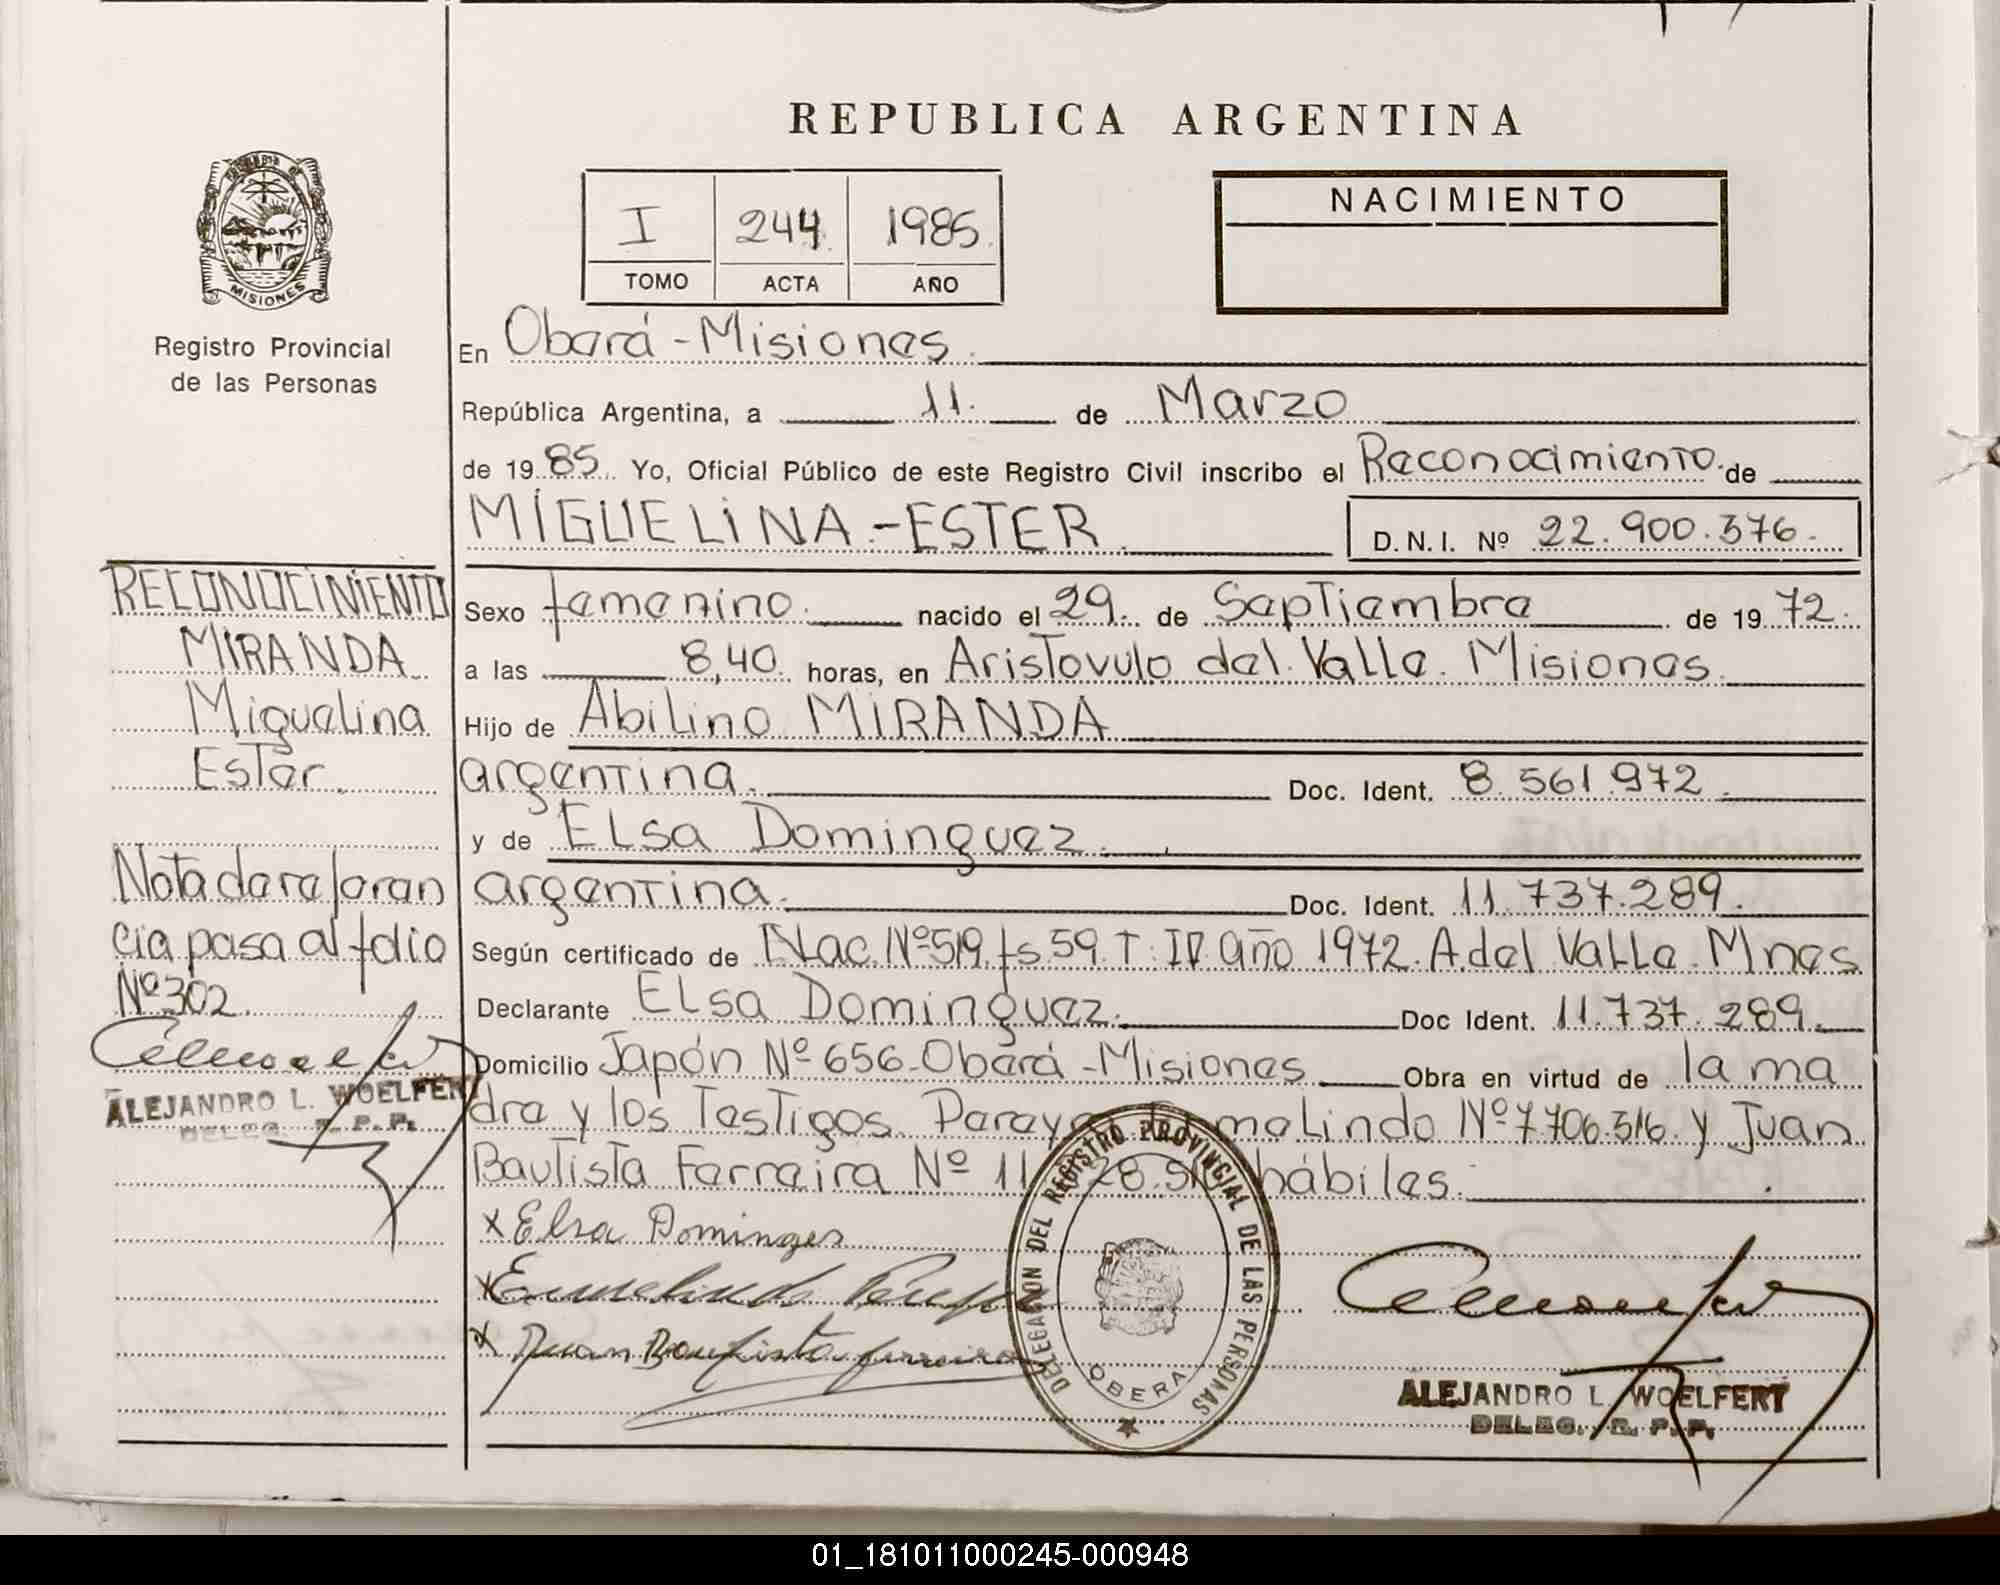 REPUBLICA ARGENTINA
MISIONES
Registro Provincial
de las Personas
I 244 1985
TOMO ACTA AÑO
NACIMIENTO
En Oberá - Misiones
República Argentina, a 11 de Marzo
de 19 85 Yo, Oficial Público de este Registro Civil inscribo el Reconocimiento de
MIGUELINA - ESTER
D.N.I. Nº 22.900.376
Sexo femenino nacido el 29 de Septiembre de 19 72
a las 8,40 horas, en Aristovulo del Valle. Misiones
Hijo de Abilino MIRANDA
argentina Doc. Ident. 8.561.972
y de Elsa Dominguez
argentina Doc. Ident. 11.737.289
Según certificado de Nac. Nº 519 fs 59. T: IV año 1972. A. del Valle. Mnes
Declarante Elsa Dominguez Doc Ident. 11.737.289
Domicilio Japón Nº 656 - Oberá - Misiones Obra en virtud de la ma
dre y los Testigos Pereyra melindo Nº 7.706.516 y Juan
Bautista Ferreira Nº 11 28.51 hábiles
x Elsa Dominges
x
x Juan Bautista ferreira
DELEGACION DEL REGISTRO PROVINCIAL DE LAS PERSONAS
OBERA
ALEJANDRO L. WOELFERT
DELEG. R. P. P.
RECONOCIMIENTO
MIRANDA
Miguelina
Ester
Nota de referen
cia pasa al folio
Nº 302
ALEJANDRO L. WOELFERT
DELEG. R. P. P.
01_181011000245-000948